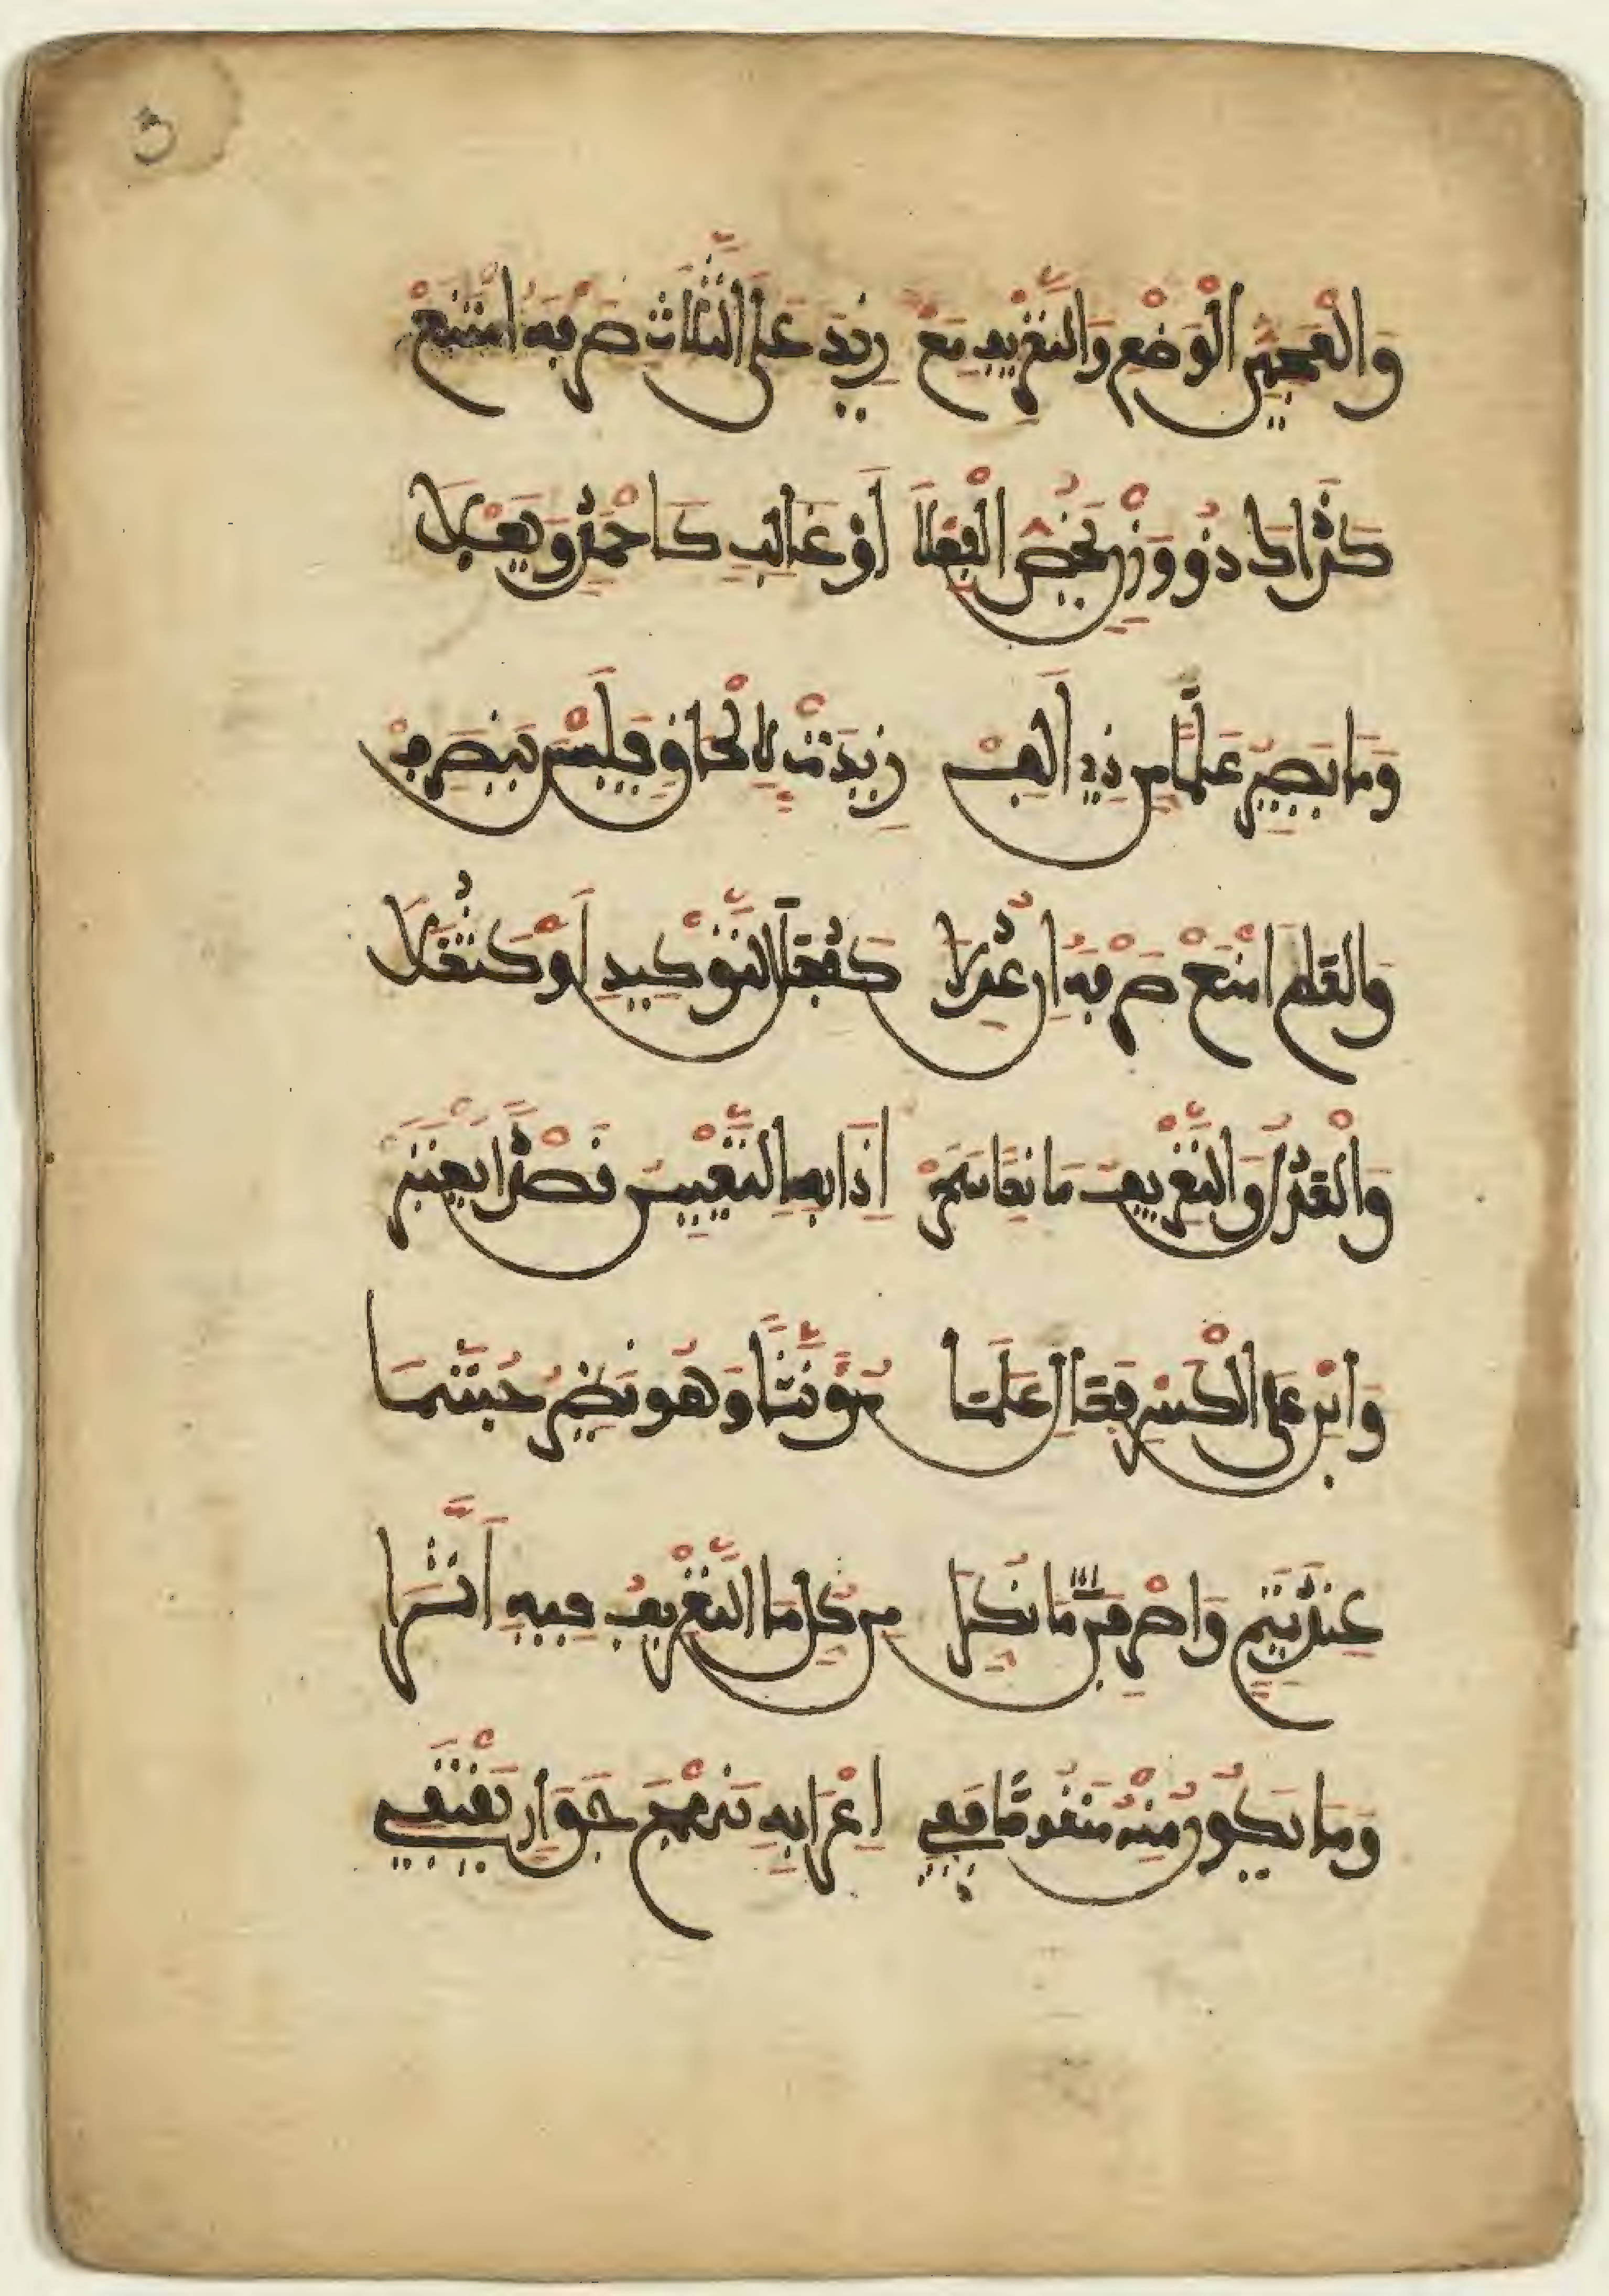 3
وَالْعَجَمِيُّ الْوَضْعِ وَالتَّعْرِيفِ مَعْ زَيْدٍ عَلَى الثَّلَاثِ صَرْفُهُ امْتَنَعْ
كَذَاكَ ذُو وَزْنٍ يَخُصُّ الْفِعْلَا أَوْ غَالِبٍ كَأَحْمَدٍ وَيَعْلَى
وَمَا يَصِيرُ عَلَمًا مِنْ ذِي أَلِفْ زِيدَتْ لِإِلْحَاقٍ فَلَيْسَ يَنْصَرِفْ
وَالْعَلَمَ امْنَعْ صَرْفَهُ إِنْ عُدِلَا كَفُعَلِ التَّوْكِيدِ أَوْ كَثُعَلَا
وَالْعَدْلُ وَالتَّعْرِيفُ مَانِعَا سَحَرْ إِذَا بِهِ التَّعْيِينُ قَصْدًا يُعْتَبَرْ
وَابْنِ عَلَى الْكَسْرِ فَعَالِ عَلَمَا مُؤَنَّثًا وَهُوَ نَظِيرُ جُشَمَا
عِنْدَ تَمِيمٍ وَاصْرِفَنْ مَا نُكِّرَا مِنْ كُلِّ مَا التَّعْرِيفُ فِيهِ أَثَّرَا
وَمَا يَكُونُ مِنْهُ مَنْقُوصًا فَفِي إِعْرَابِهِ نَهْجَ جَوَارٍ يَقْتَفِي